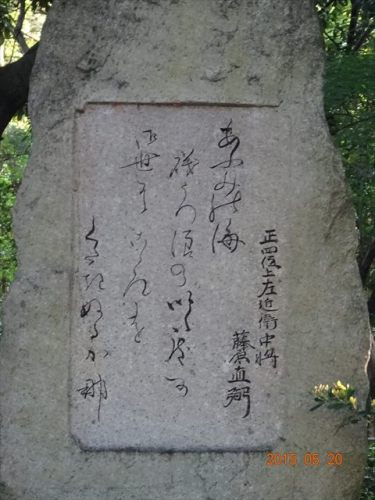 正四位上左近衛中将
藤原直弼
あふみの海
磯うつ浪のいく度か
御世にこゝろを
くだきぬるか那
2015 05 20